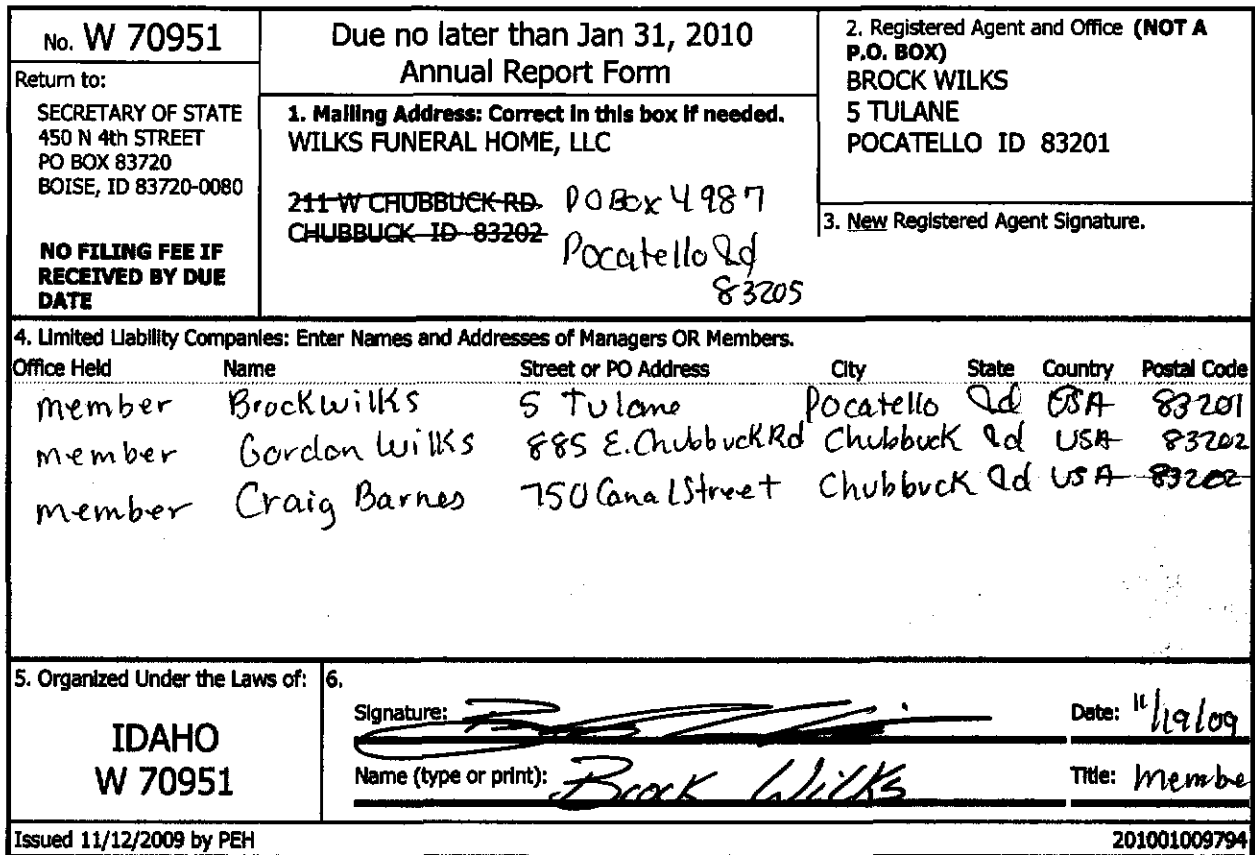 No. W 70951
Return to:
SECRETARY OF STATE
450 N 4th STREET
PO BOX 83720
BOISE, ID 83720-0080
NO FILING FEE IF
RECEIVED BY DUE
DATE
Due no later than Jan 31, 2010
Annual Report Form
1. Mailing Address: Correct in this box if needed.
WILKS FUNERAL HOME, LLC
211 W CHUBBUCK RD. PO Box 4987
CHUBBUCK ID 83202 Pocatello Id
83205
2. Registered Agent and Office (NOT A
P.O. BOX)
BROCK WILKS
5 TULANE
POCATELLO ID 83201
3. New Registered Agent Signature.
4. Limited Liability Companies: Enter Names and Addresses of Managers OR Members.
Office Held Name Street or PO Address City State Country Postal Code
member Brock Wilks 5 Tulane Pocatello Id USA 83201
member Gordon Wilks 885 E. Chubbuck Rd Chubbuck Id USA 83202
member Craig Barnes 750 Canal Street Chubbuck Id USA 83202
5. Organized Under the Laws of:
IDAHO
W 70951
6.
Signature: Date: 11/19/09
Name (type or print): Brock Wilks Title: Membe
Issued 11/12/2009 by PEH 201001009794